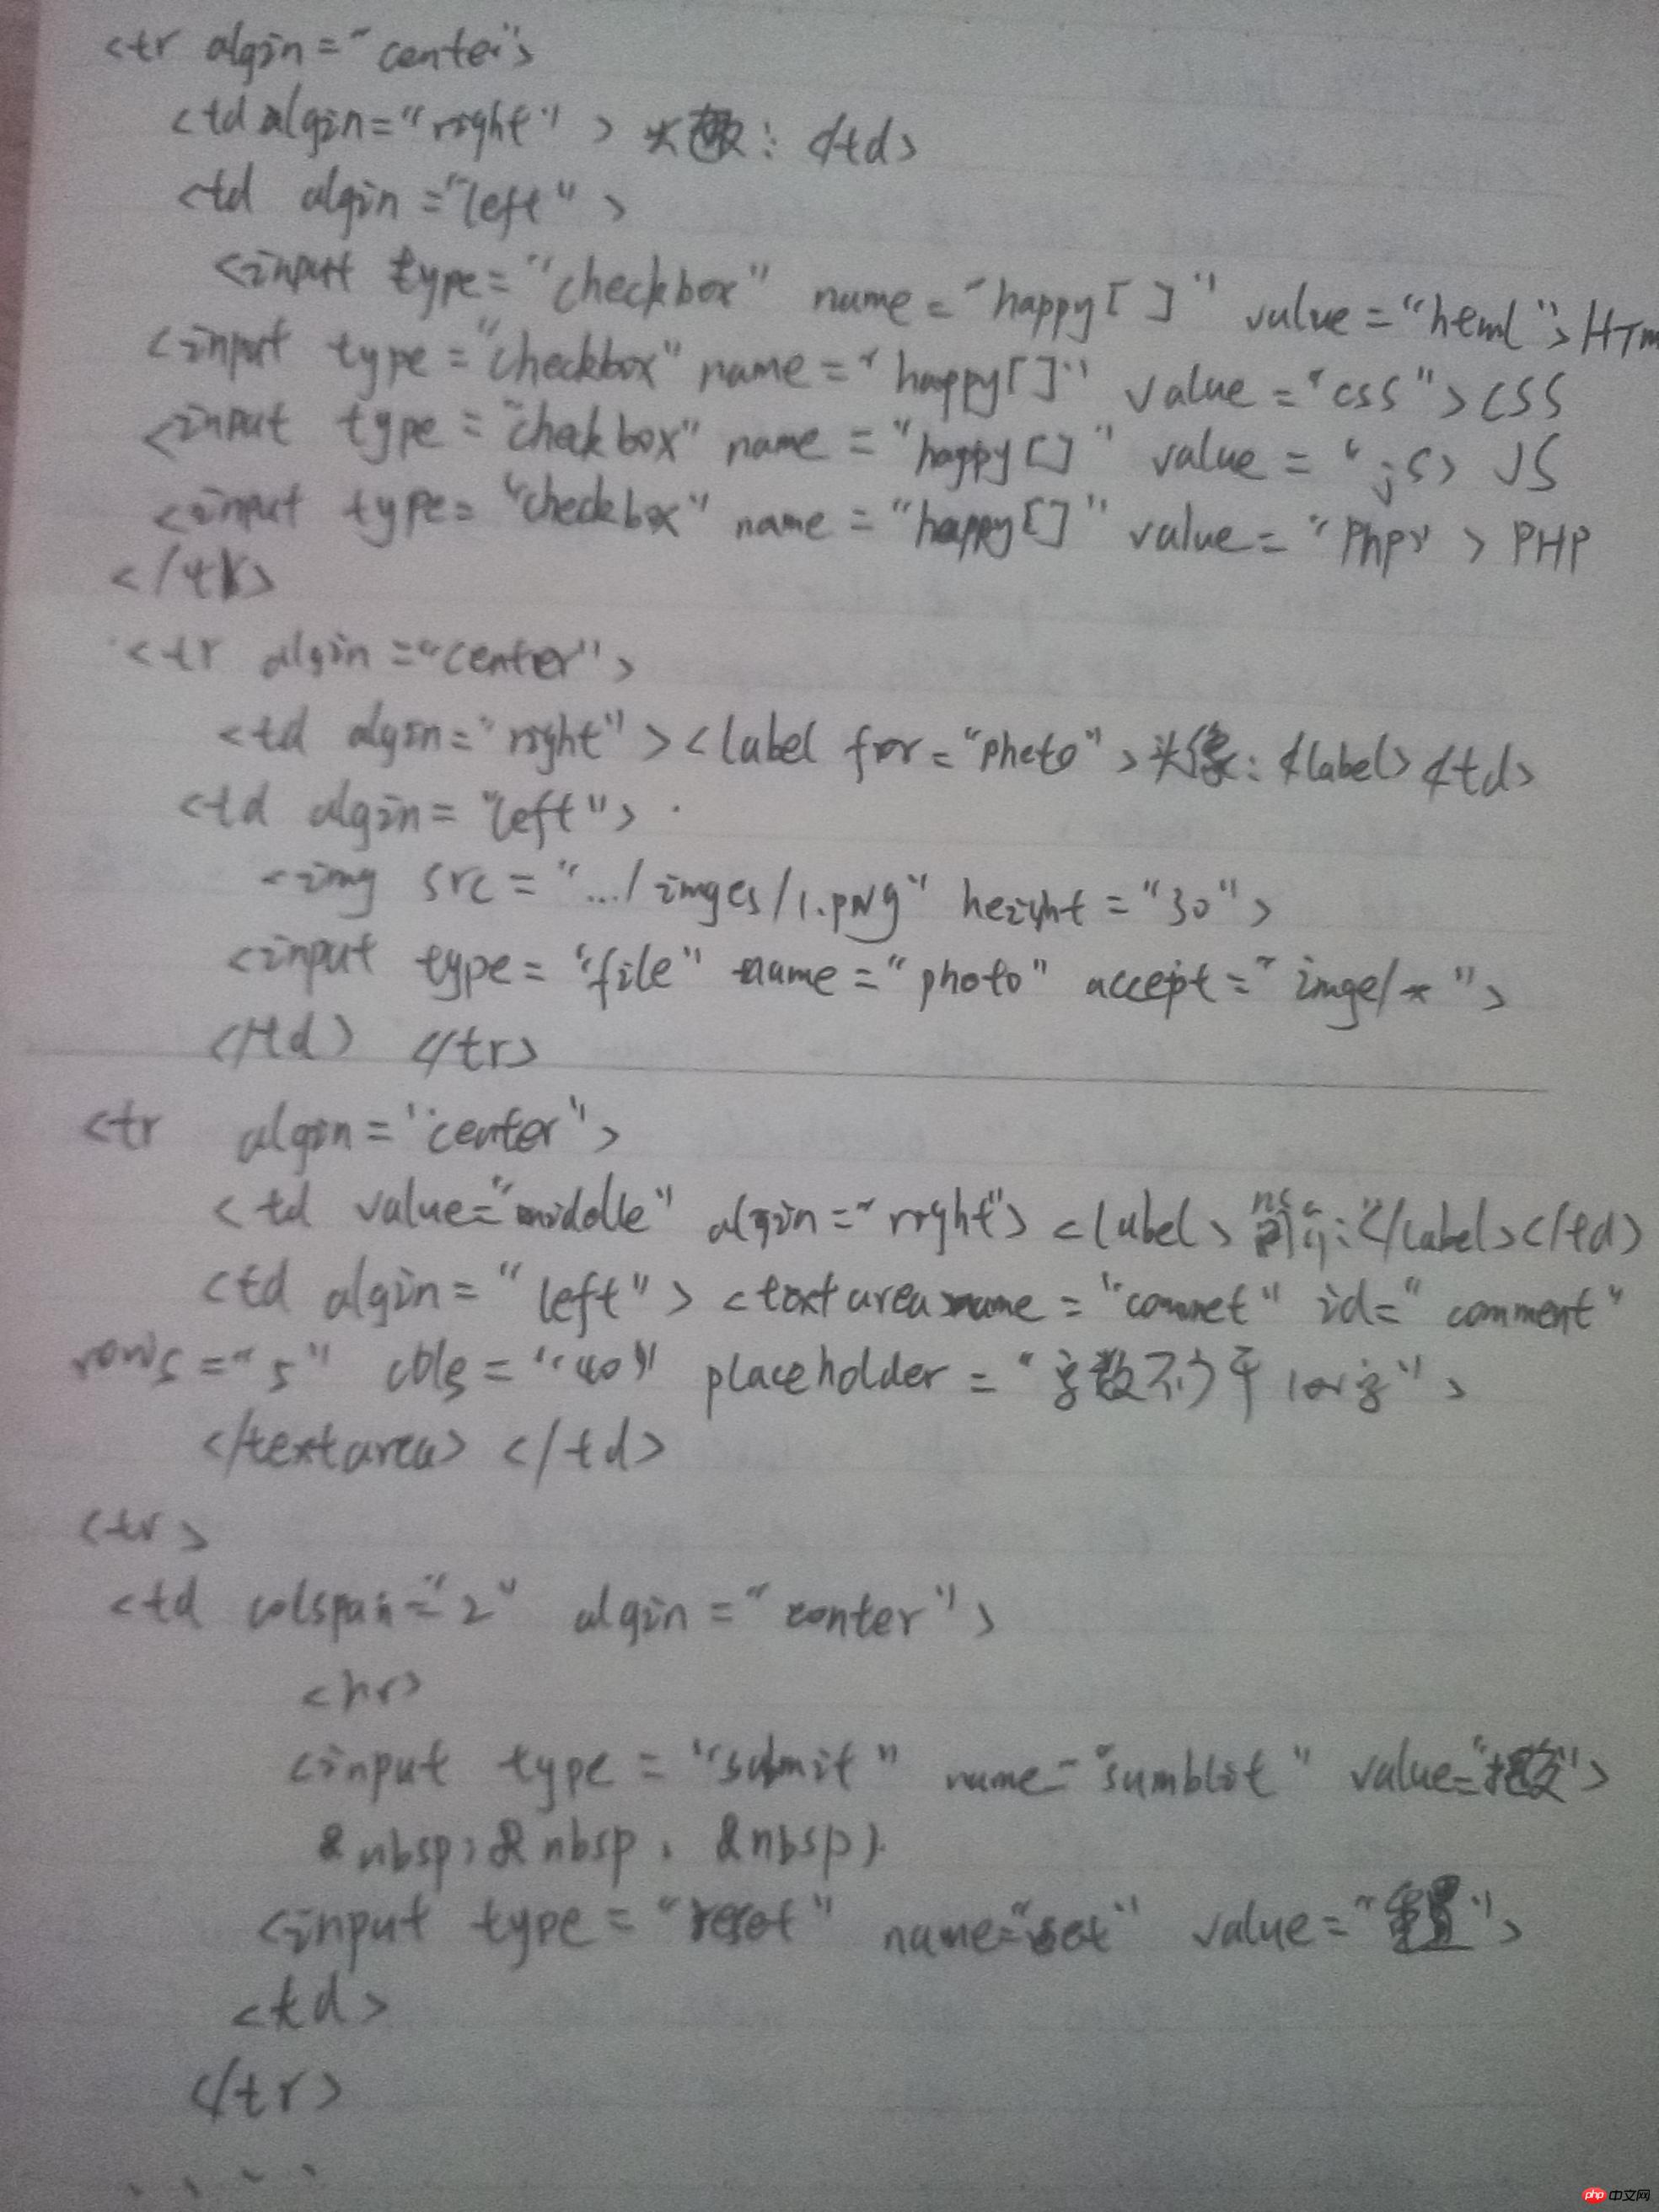 <tr algin="center">
<td algin="right" > 头 : </td>
<td algin="left" >
<input type="checkbox" name="happy[]" value="html">HTM
<input type="checkbox" name="happy[]" value="css">CSS
<input type="checkbox" name="happy[]" value="js> JS
<input type="checkbox" name="happy[]" value="php" > PHP
</tr>
<tr algin="center">
<td algin="right"><label for="photo">头像:</label></td>
<td algin="left">
<img src=".../imges/1.png" height="30">
<input type="file" name="photo" accept="imge/*">
</td> </tr>
<tr algin="center">
<td value="middle" algin="right"><label>简介:</label></td>
<td algin="left"><textarea name="commet" id="comment"
rows="5" cols="40" placeholder="字数不少于 字">
</textarea> </td>
<tr>
<td colspan="2" algin="center">
<hr>
<input type="submit" name="sumblit" value="提交">
&nbsp;&nbsp; &nbsp;
<input type="reset" name="set" value="重置">
<td>
</tr>
php 中文网